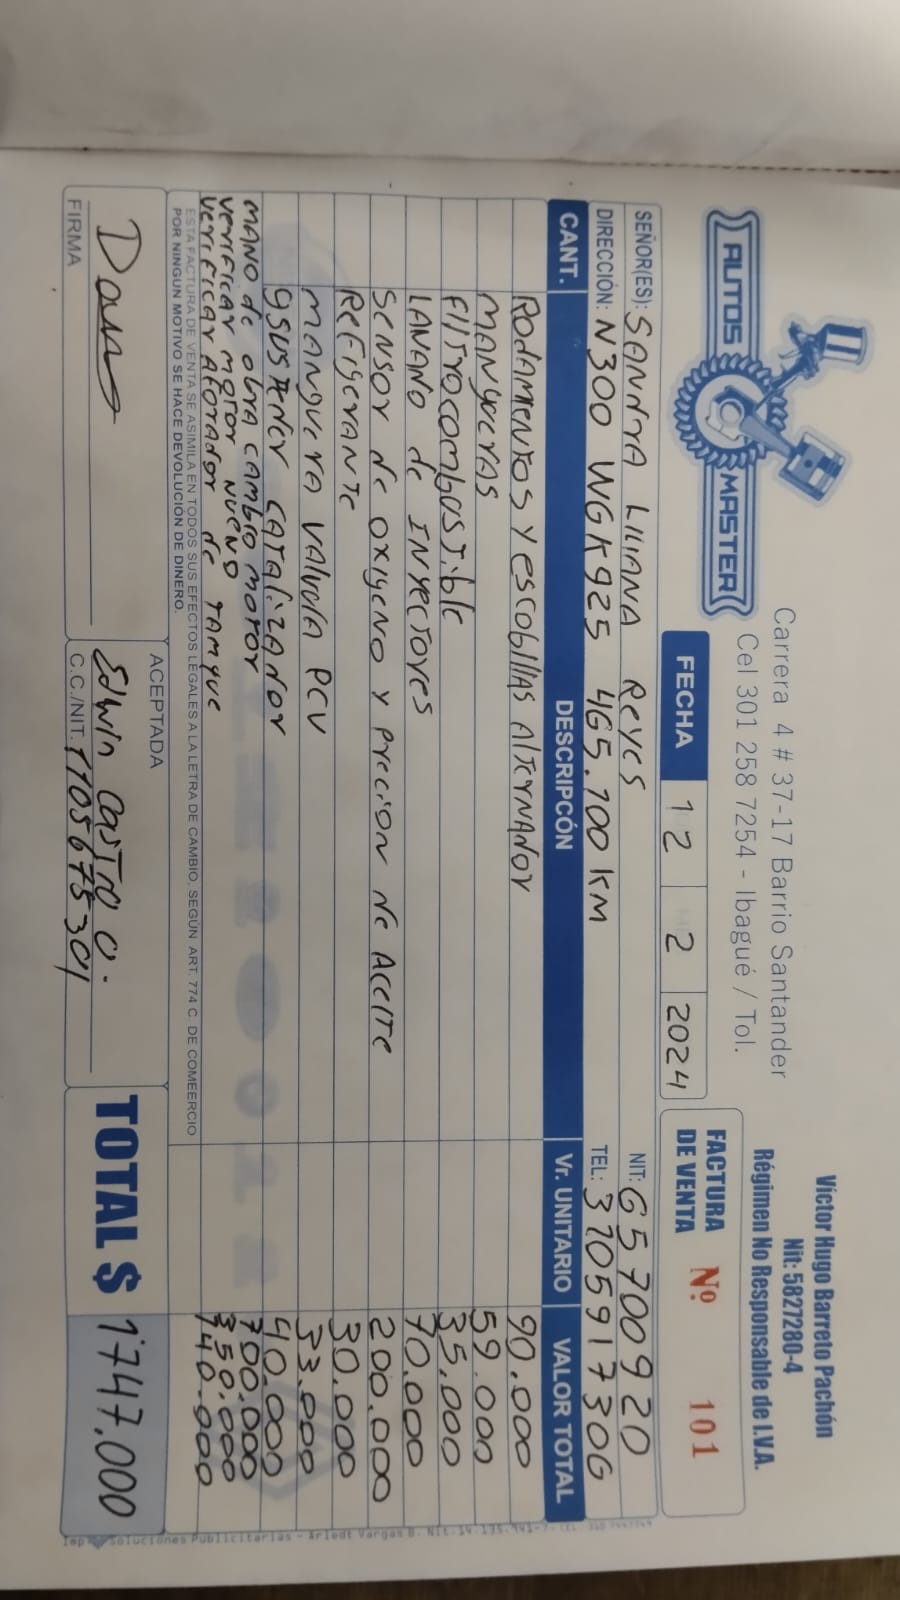 AUTOS MASTER
Carrera 4 # 37-17 Barrio Santander
Cel 301 258 7254 - Ibagué / Tol.
Víctor Hugo Barreto Pachón
Nit: 5827280-4
Régimen No Responsable de I.V.A.
FECHA 12 2 2024
FACTURA DE VENTA Nº 101
SEÑOR(ES): SANDRA LILIANA REYES NIT: 65700920
DIRECCIÓN: N300 WGK925 465.700 KM TEL: 3105917306
CANT. DESCRIPCÓN Vr. UNITARIO VALOR TOTAL
RODAMENTOS Y escobllAS AlTERNADOR 90.000
MANGUERAS 59.000
FIlTRO combusTible 35.000
LAVADO de INYECTORES 70.000
SENSOR de OXIGENO Y PRECION de ACEITE 200.000
REFIGERANTE 30.000
MANGUERA VALVULA PCV 33.000
CATALIZADOR 40.000
MANO de obra cambio motor 700.000
VERIFICAR motor NUEVO 350.000
VERIFICAR AFORADOR de TANQUE 140.000
ESTA FACTURA DE VENTA SE ASIMILA EN TODOS SUS EFECTOS LEGALES A LA LETRA DE CAMBIO, SEGÚN ART. 774 C. DE COMEERCIO
POR NINGUN MOTIVO SE HACE DEVOLUCIÓN DE DINERO.
FIRMA
ACEPTADA
Edwin Castro O.
C.C./NIT. 1105675304
TOTAL $ 1'747.000